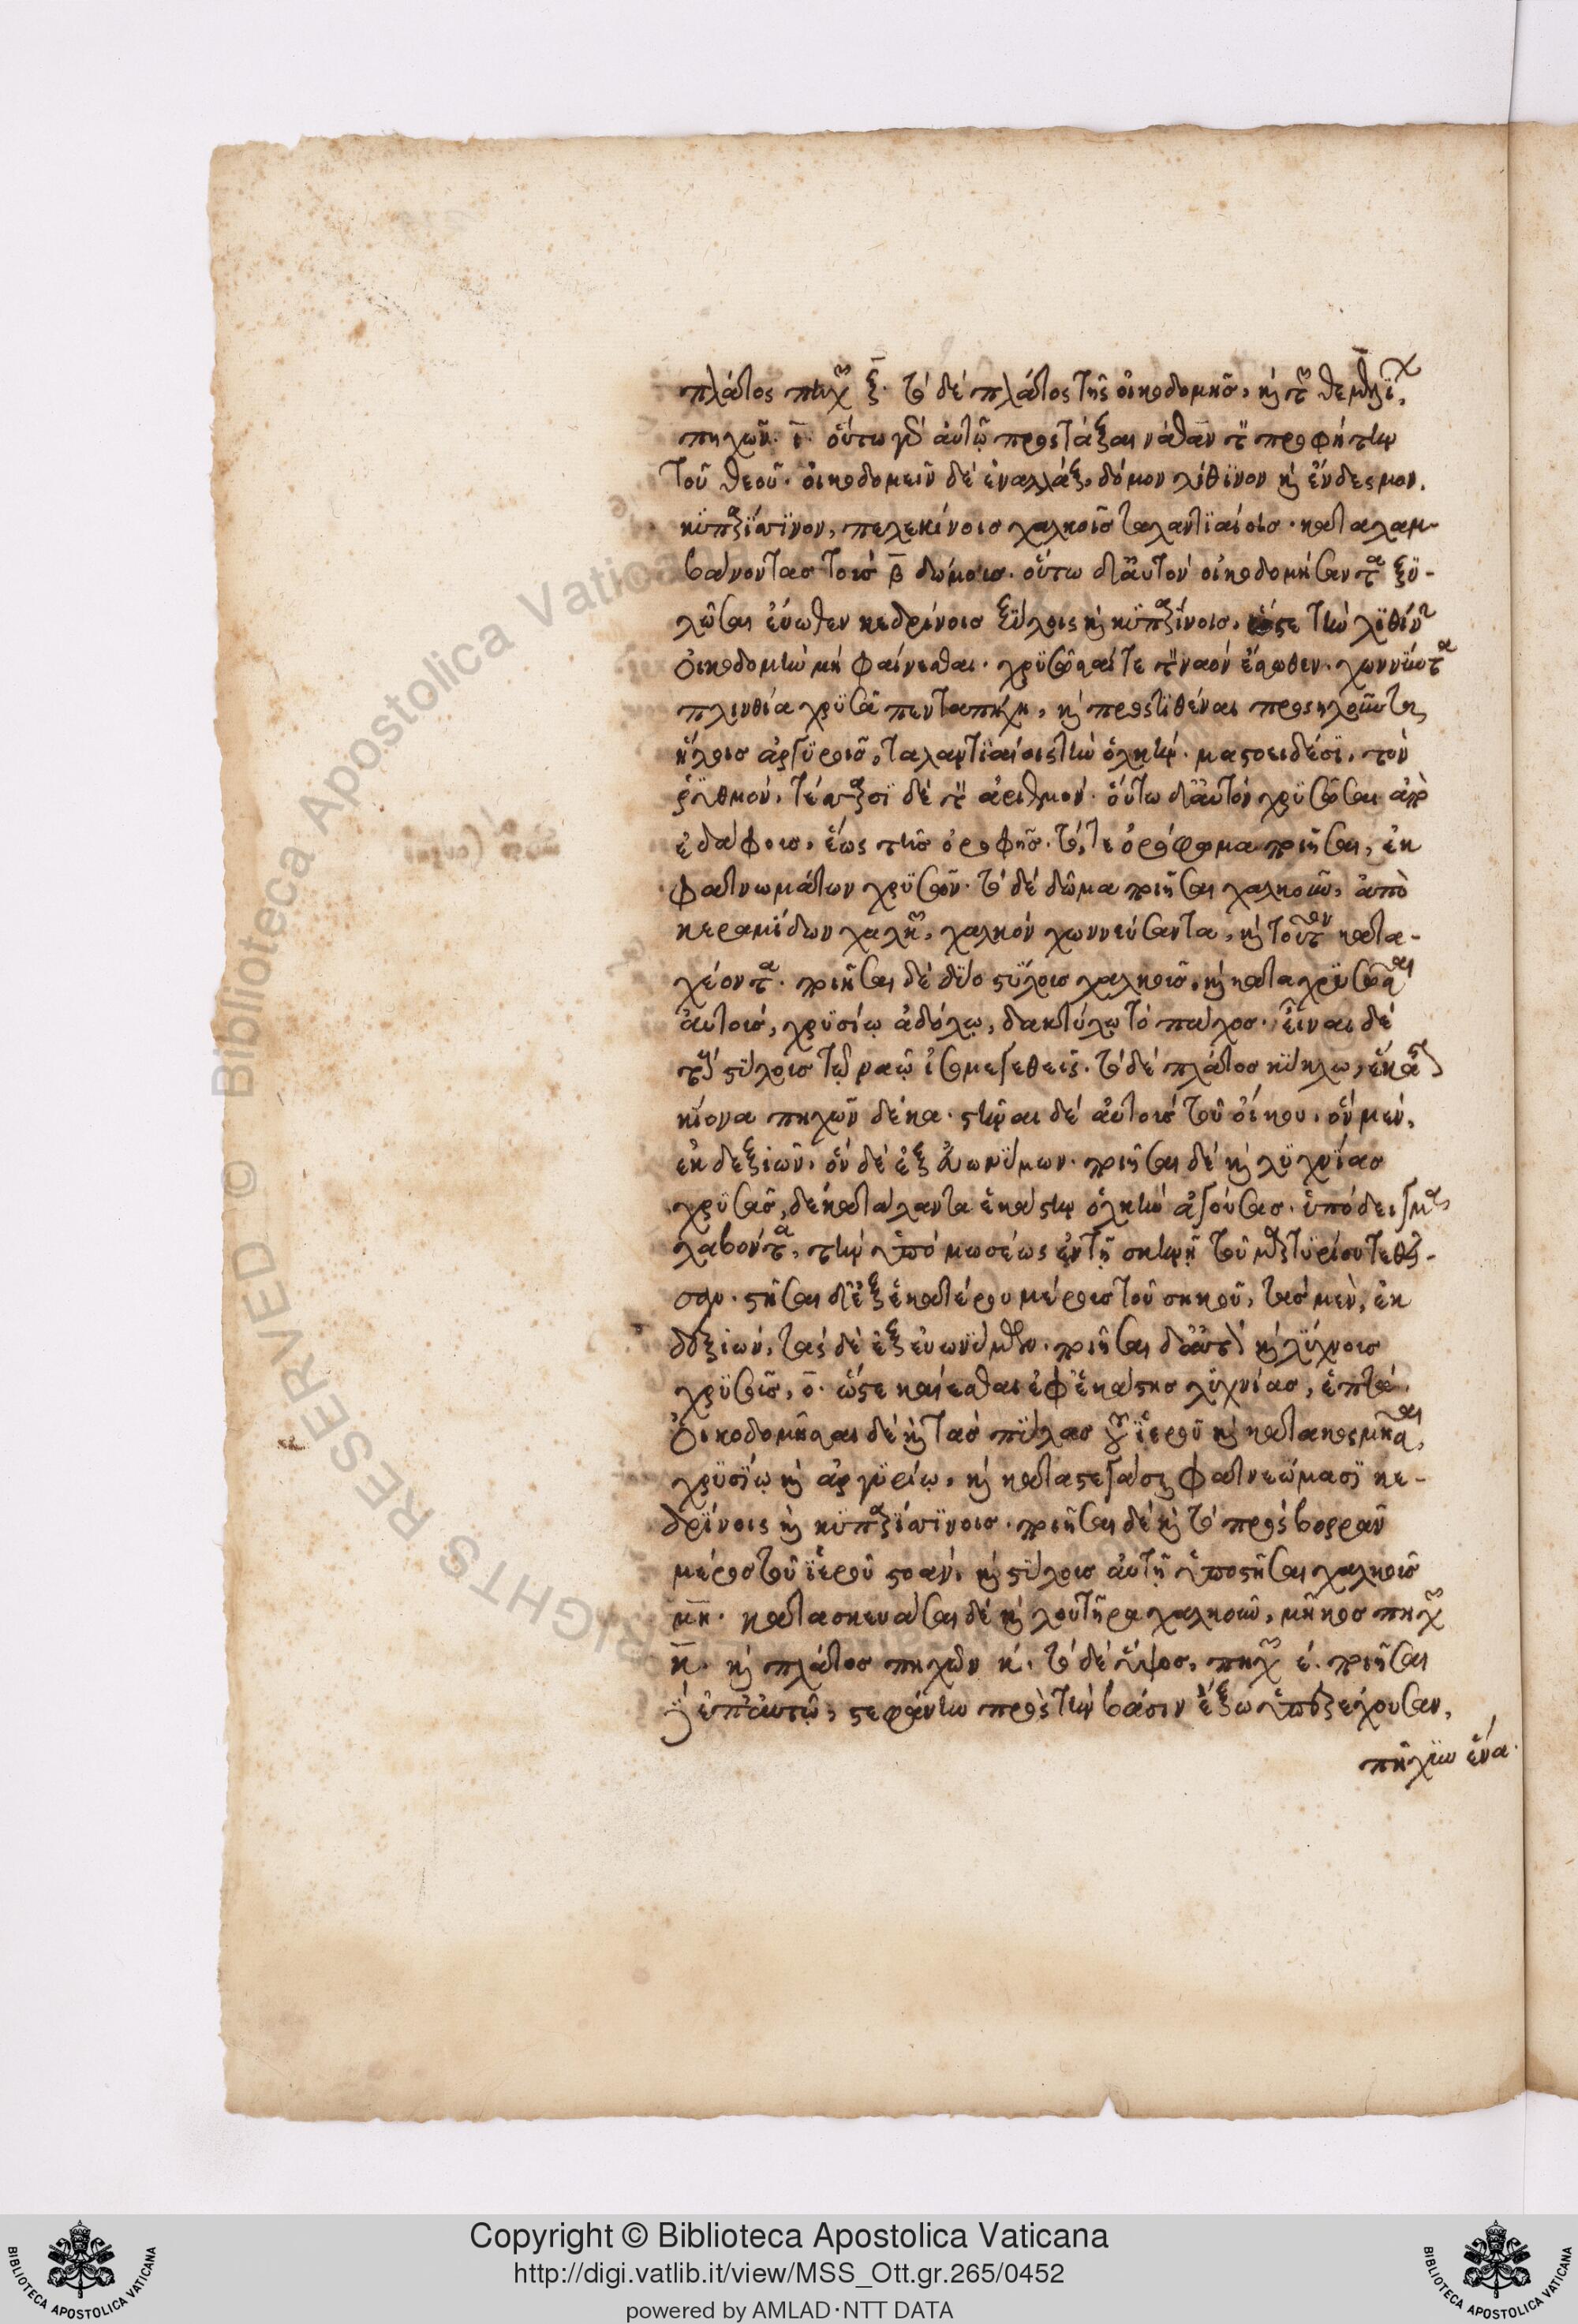 πλάτος πηχῶν ξ̄. τὸ δὲ πλάτος τῆς οἰκοδομῆς, καὶ τῶν θεμελίων,
πηχῶν ῑ. οὕτω γὰρ αὐτῷ προστάξαι νάθαν τὸν προφήτην
τοῦ θεοῦ. οἰκοδομεῖν δὲ ἐναλλάξ, δόμον λίθϊνον καὶ ἔνδεσμον
κϋπαρϊσσϊνον, πελεκίνοις χαλκοῖς ταλαντϊαίοις. καταλαμ-
βάνοντας τοὺς β̄ δώμους. οὕτω δ' αὐτὸν οἰκοδομήσαντα ξϋ-
λῶσαι ἔσωθεν κεδρίνοις ξύλοις καὶ κϋπαρισσίνοις, ὥστε τὴν λϊθίνην
οἰκοδομὴν μὴ φαίνεσθαι. χρϋσῶσαί τε τὸν ναὸν ἔσωθεν. χωννύοντα
πλινθία χρϋσᾶ πενταπήχη, καὶ προστϊθέναι προσηλοῦντα
ἥλοις ἀργϋροῖς, ταλαντϊαίοις τὴν ὁλκὴν. μαστοειδέσϊ, τὸν
ῥϋθμόν, τέσσαρσϊ δὲ τὸν ἀριθμόν. οὕτω δ' αὐτὸν χρϋσῶσαι ἀπὸ
ἐδάφους, ἕως τῆς ὀροφῆς. τό, τε ὀρόφωμα ποιῆσαι, ἐκ
φατνωμάτων χρϋσῶν. τὸ δὲ δῶμα ποιῆσαι χαλκοῦν, ἀπὸ
κεραμίδων χαλκῶν, χαλκὸν χωννεύσαντα, καὶ τοῦτον κατα-
χέοντα. ποιῆσαι δὲ δύο στύλους χαλκοῦς, καὶ καταχρϋσῶσαι
αὐτοὺς, χρϋσίῳ ἀδόλῳ, δακτύλῳ τὸ πάχος. εἶναι δὲ
τοὺς στύλους τῷ ναῷ ἰσομεγεθεῖς. τὸ δὲ πλάτος κύκλῳ, ἕκαστον
κίονα πηχῶν δέκα. στῆσαι δὲ αὐτοὺς τοῦ οἴκου. ὃν μὲν,
ἐκ δεξιῶν, ὃν δὲ ἐξ εὐωνύμων. ποιῆσαι δὲ καὶ λϋχνίας
χρϋσᾶς, δέκα τάλαντα ἑκάστην ὁλκὴν ἀγούσας. ὑπόδειγμα
λαβόντα, τὴν ὑπὸ μωσέως ἐν τῇ σκηνῇ τοῦ μαρτϋρίου τεθεῖ-
σαν. στῆσαι δ' ἐξ ἑκατέρου μέρους τοῦ σηκοῦ, τὰς μὲν, ἐκ
δεξιῶν, τὰς δὲ ἐξ εὐωνύμων. ποιῆσαι δ' αὐτὸν καὶ λύχνους
χρϋσοῦς, ο̄. ὥστε καίεσθαι ἐφ' ἑκάστης λϋχνίας, ἑπτά.
Οἰκοδομῆσαι δὲ καὶ τὰς πύλας τοῦ ἱεροῦ καὶ κατακοσμῆσαι,
χρϋσίῳ καὶ ἀργϋρίῳ, καὶ καταστεγάσαι φατνώμασϊ κε-
δρίνοις καὶ κϋπαρισσϊνοις. ποιῆσαι δὲ καὶ τὸ πρὸς βορρᾶν
μέρος τοῦ ἱεροῦ στοὰν, καὶ στύλους αὐτῇ ὑποστῆσαι χαλκοῦς
μ̄η̄. κατασκευάσαι δὲ καὶ λουτῆρα χαλκοῦν, μῆκος πηχῶν
κ̄. καὶ πλάτος πηχῶν κ. τὸ δὲ ὕψος, πηχῶν ε. ποιῆσαι
δὲ ἐπ' αὐτῷ, στεφάνην πρὸς τὴν βάσιν ἔξω ὑπερέχουσαν,
πῆχϋν ἕνα.